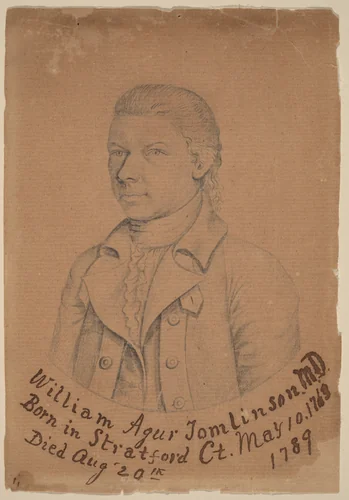 William Agur Tomlinson, MD.
Born in Stratford Ct. May 10, 1763
Died Aug 20th 1789